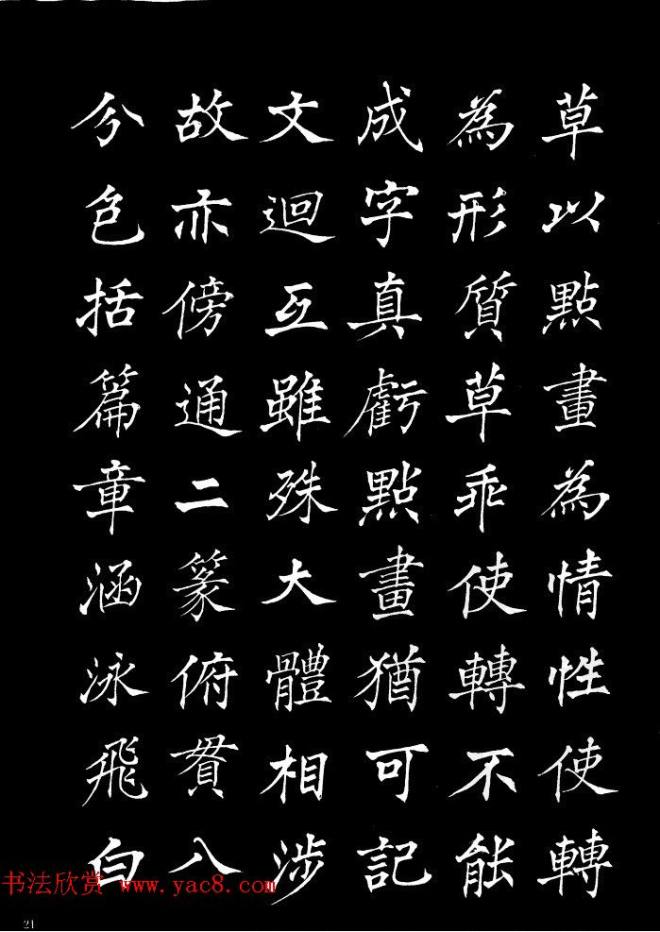 草以點畫為情性使轉
為形質草乖使轉不能
成字真虧點畫猶可記
文迴互雖殊大體相涉
故亦傍通二篆俯貫八
分包括篇章涵泳飛白
书法欣赏 www.yac8.com
21